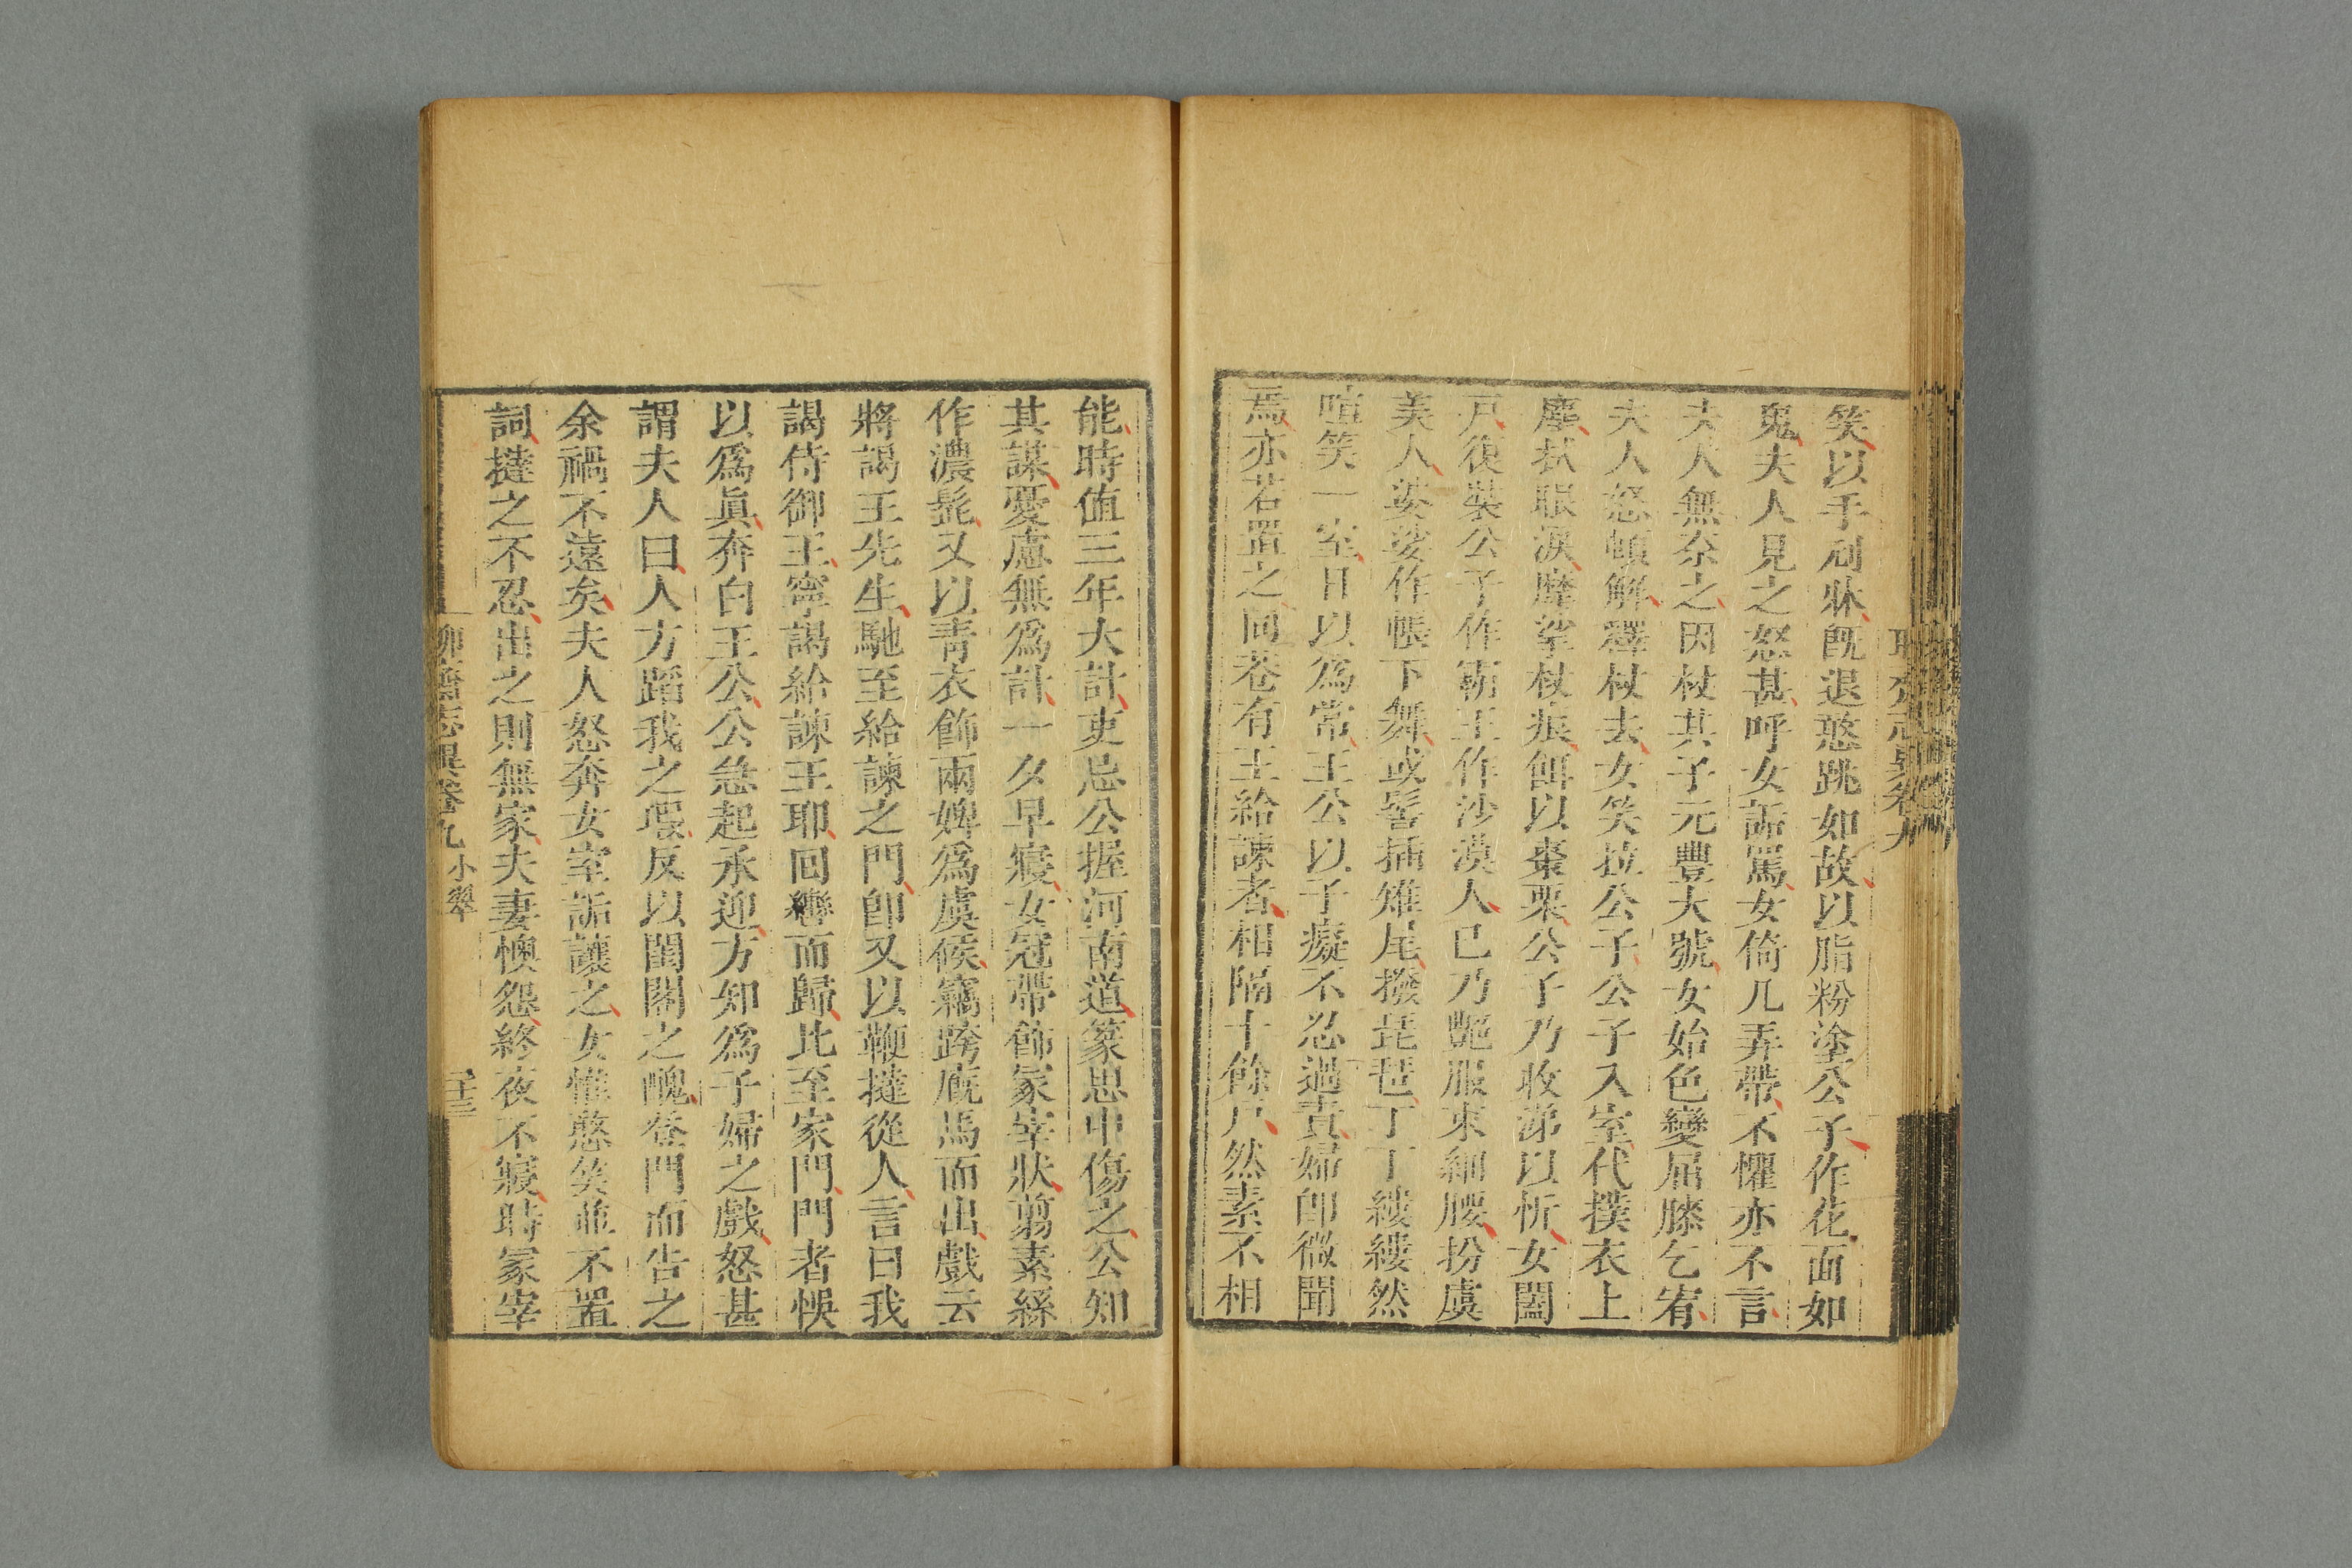 笑以手刓牀旣退憨跳如故以脂粉塗公子作花面如
鬼夫人見之怒甚呼女詬罵女倚几弄帶不懼亦不言
夫人無奈之因杖其子元豐大號女始色變屈膝乞宥
夫人怒頓解釋杖去女笑拉公子公子入室代撲衣上
塵拭眼淚摩挲杖痕餌以棗栗公子乃收涕以忻女闔
戸復裝公子作霸王作沙漠人已乃艶服束細腰扮虞
美人婆娑作帳下舞或髻插雉尾撥琵琶丁丁縷縷然
喧笑一室日以爲常王公以子癡不忍過責婦卽微聞
焉亦若置之同巷有王給諫者相隔十餘戸然素不相
能時値三年大計吏忌公握河南道篆思中傷之公知
其謀憂慮無爲計一夕早寢女冠帶飾冢宰狀翦素絲
作濃髭又以靑衣飾兩婢爲虞候竊跨廐馬而出戲云
將謁王先生馳至給諫之門卽又以鞭撻從人言曰我
謁侍御王寧謁給諫王耶囘轡而歸比至家門門者悞
以爲眞奔白王公公急起承迎方知爲子婦之戲怒甚
謂夫人曰人方蹈我之瑕反以閨閣之醜登門而告之
余禍不遠矣夫人怒奔女室詬讓之女惟憨笑並不置
詞撻之不忍出之則無家夫妻懊怨終夜不寢時冢宰
聊齋志異卷九 小翠 二十三